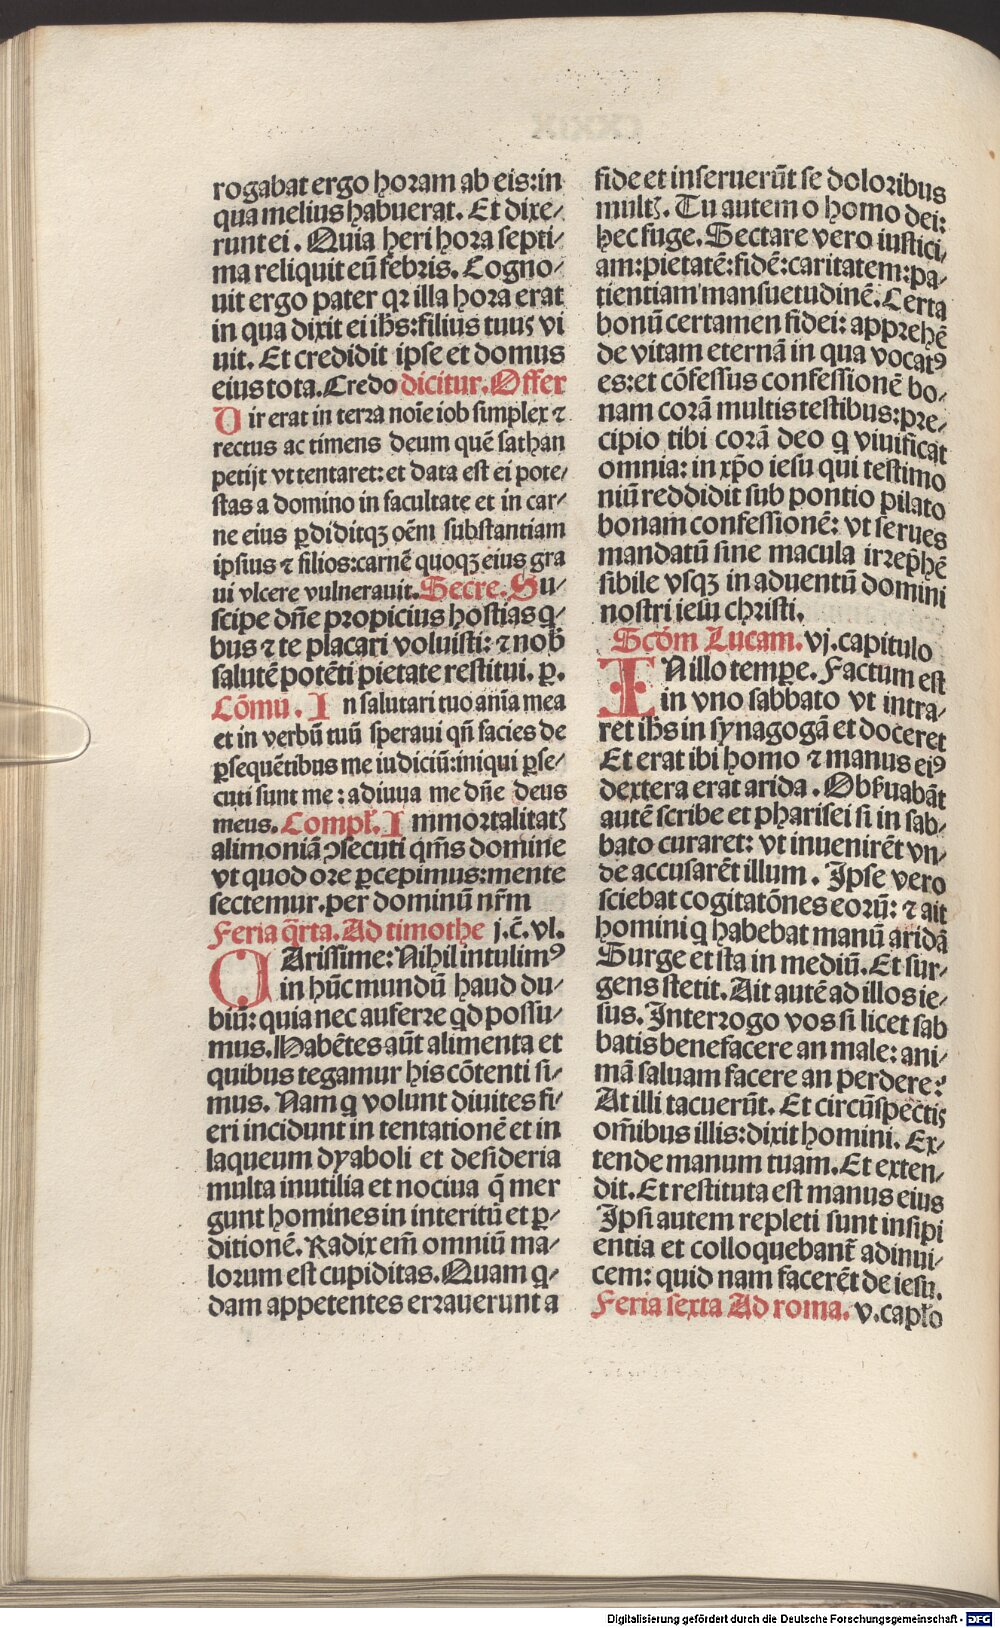 rogabat ergo horam ab eis:in
qua melius habuerat. Et dixe/
runt ei. Quia heri hora septi/
ma reliquit eū febris. Cogno/
uit ergo pater qꝛ illa hora erat
in qua dixit ei ihs̄:filius tuus vi
uit. Et credidit ipse et domus
eius tota. Credo dicitur. Offer
Uir erat in terra noīe iob simplex ⁊
rectus ac timens deum quē sathan
petijt vt tentaret: et data est ei pote/
stas a domino in facultate et in car/
ne eius ꝑdiditqꝫ oēm substantiam
ipsius ⁊ filios:carnē quoqꝫ eius gra
ui vlcere vulnerauit. Secre. Su/
scipe dn̄e propicius hostias q̇/
bus ⁊ te placari voluisti: ⁊ nob̄
salutē potēti pietate restitui. ꝑ.
Cōmu. In salutari tuo anīa mea
et in verbū tuū speraui qn̄ facies de
ꝑsequētibus me iudiciū:iniqui ꝑse/
cuti sunt me: adiuua me dn̄e deus
meus. Compł. Immortalitatꝭ
alimoniā ꝯsecuti qm̄s domine
vt quod ore ꝑcepimus:mente
sectemur. per dominū nr̄m
Feria q̄rta. Ad timothe j. c̄. vl.
CArissime: Nihil intulimꝰ
in hūc mundū haud du/
biū: quia nec auferre qd possu/
mus. Habētes aūt alimenta et
quibus tegamur his cōtenti si/
mus. Nam q̇ volunt diuites fi/
eri incidunt in tentationē et in
laqueum dyaboli et desideria
multa inutilia et nociua q̄ mer
gunt homines in interitū et ꝑ/
ditionē. Radix em̄ omniū ma/
lorum est cupiditas. Quam q̇/
dam appetentes errauerunt a
fide et inseruerūt se doloribus
multꝭ. Tu autem o homo dei:
hec fuge. Sectare vero iustici/
am: pietatē: fidē: caritatem: pa/
tientiam mansuetudinē. Certa
bonū certamen fidei: apprehē
de vitam eternā in qua vocatꝰ
es: et cōfessus confessionē bo/
nam corā multis testibus: pre/
cipio tibi corā deo q̇ viuificat
omnia: in xp̄o iesu qui testimo
niū reddidit sub pontio pilato
bonam confessionē: vt serues
mandatū sine macula irrep̄hē
sibile vsqꝫ in aduentū domini
nostri iesu christi.
Scd̄m Lucam. vj. capitulo
IN illo tempe. Factum est
in vno sabbato vt intra/
ret ihs̄ in synagogā et doceret
Et erat ibi homo ⁊ manus eiꝰ
dextera erat arida. Obẜuabāt
autē scribe et pharisei si in sab/
bato curaret: vt inuenirēt vn/
de accusarēt illum. Ipse vero
sciebat cogitatōnes eorū: ⁊ ait
homini q̇ habebat manū aridā
Surge et sta in mediū. Et sur/
gens stetit. Ait autē ad illos ie/
sus. Interrogo vos si licet sab
batis benefacere an male: ani/
mā saluam facere an perdere?
At illi tacuerūt. Et circūspectꝭ
om̄ibus illis: dixit homini. Ex/
tende manum tuam. Et exten/
dit. Et restituta est manus eius
Ipsi autem repleti sunt insipi
entia et colloquebanť adinui/
cem: quid nam facerēt de iesu.
Feria sexta Ad roma. v. capło
Digitalisierung gefördert durch die Deutsche Forschungsgemeinschaft - DFG